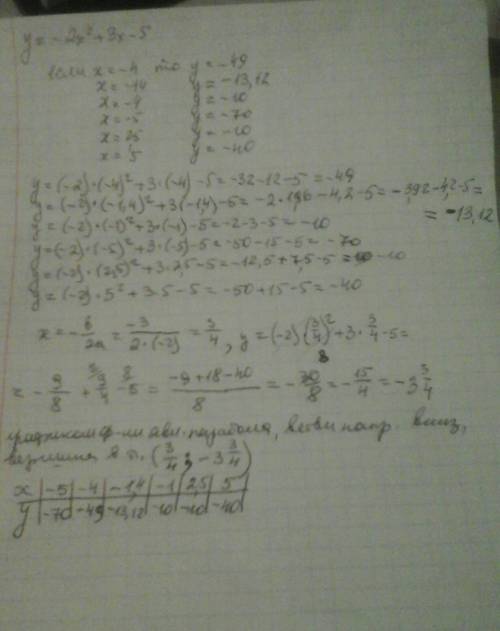 y = -2x² + 3x - 5
если x = -4 то y = -49
x = -1,4 y = -13,12
x = -1 y = -10
x = -5 y = -70
x = 2,5 y = -10
x = 5 y = -40
y = (-2)·(-4)² + 3·(-4) - 5 = -32 - 12 - 5 = -49
y = (-2)·(-1,4)² + 3(-1,4) - 5 = -2·1,96 - 4,2 - 5 = -3,92 - 4,2 - 5 =
= -13,12
y = (-2)·(-1)² + 3·(-1) - 5 = -2 - 3 - 5 = -10
y = (-2)·(-5)² + 3·(-5) - 5 = -50 - 15 - 5 = -70
y = (-2)·(2,5)² + 3·2,5 - 5 = -12,5 + 7,5 - 5 = -10
y = (-2)·5² + 3·5 - 5 = -50 + 15 - 5 = -40
x = -b/2a = -3/2·(-2) = 3/4, y = (-2)·(3/4)² + 3·3/4 - 5 =
= -9/8 + 9/4 - 5 = -9 + 18 - 40/8 = -30/8 = -15/4 = -3 3/4
графиком ф-ии явл. парабола, ветви напр. вниз,
вершина в т. (3/4; -3 3/4)
x | -5 | -4 | -1,4 | -1 | 2,5 | 5
y | -70 | -49 | -13,12 | -10 | -10 | -40